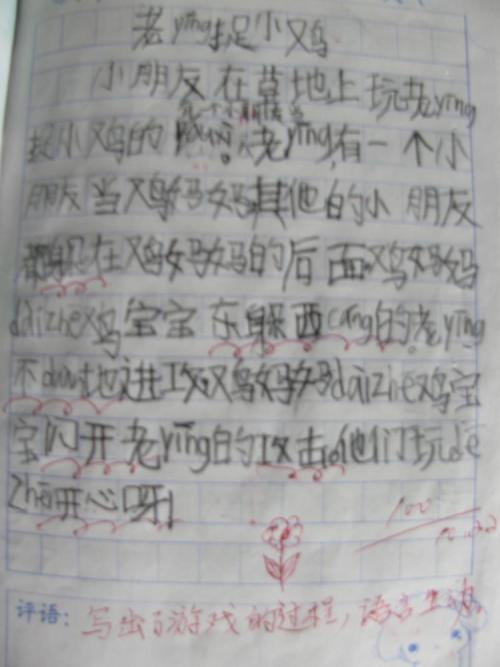 老yīng捉小鸡
小朋友在草地上玩老yīng
有一个小朋友当
捉小鸡的 老yīng,有一个小
朋友当鸡妈妈其他的小朋友
都躲在鸡妈妈的后面鸡妈妈
dàizhe鸡宝宝东躲西cáng的老yīng
不duàn地进攻鸡妈妈dàizhe鸡宝
宝闪开老yīng的攻击。他们玩de
Zhēn开心呀!
100
评语:写出了游戏的过程,语言生动。